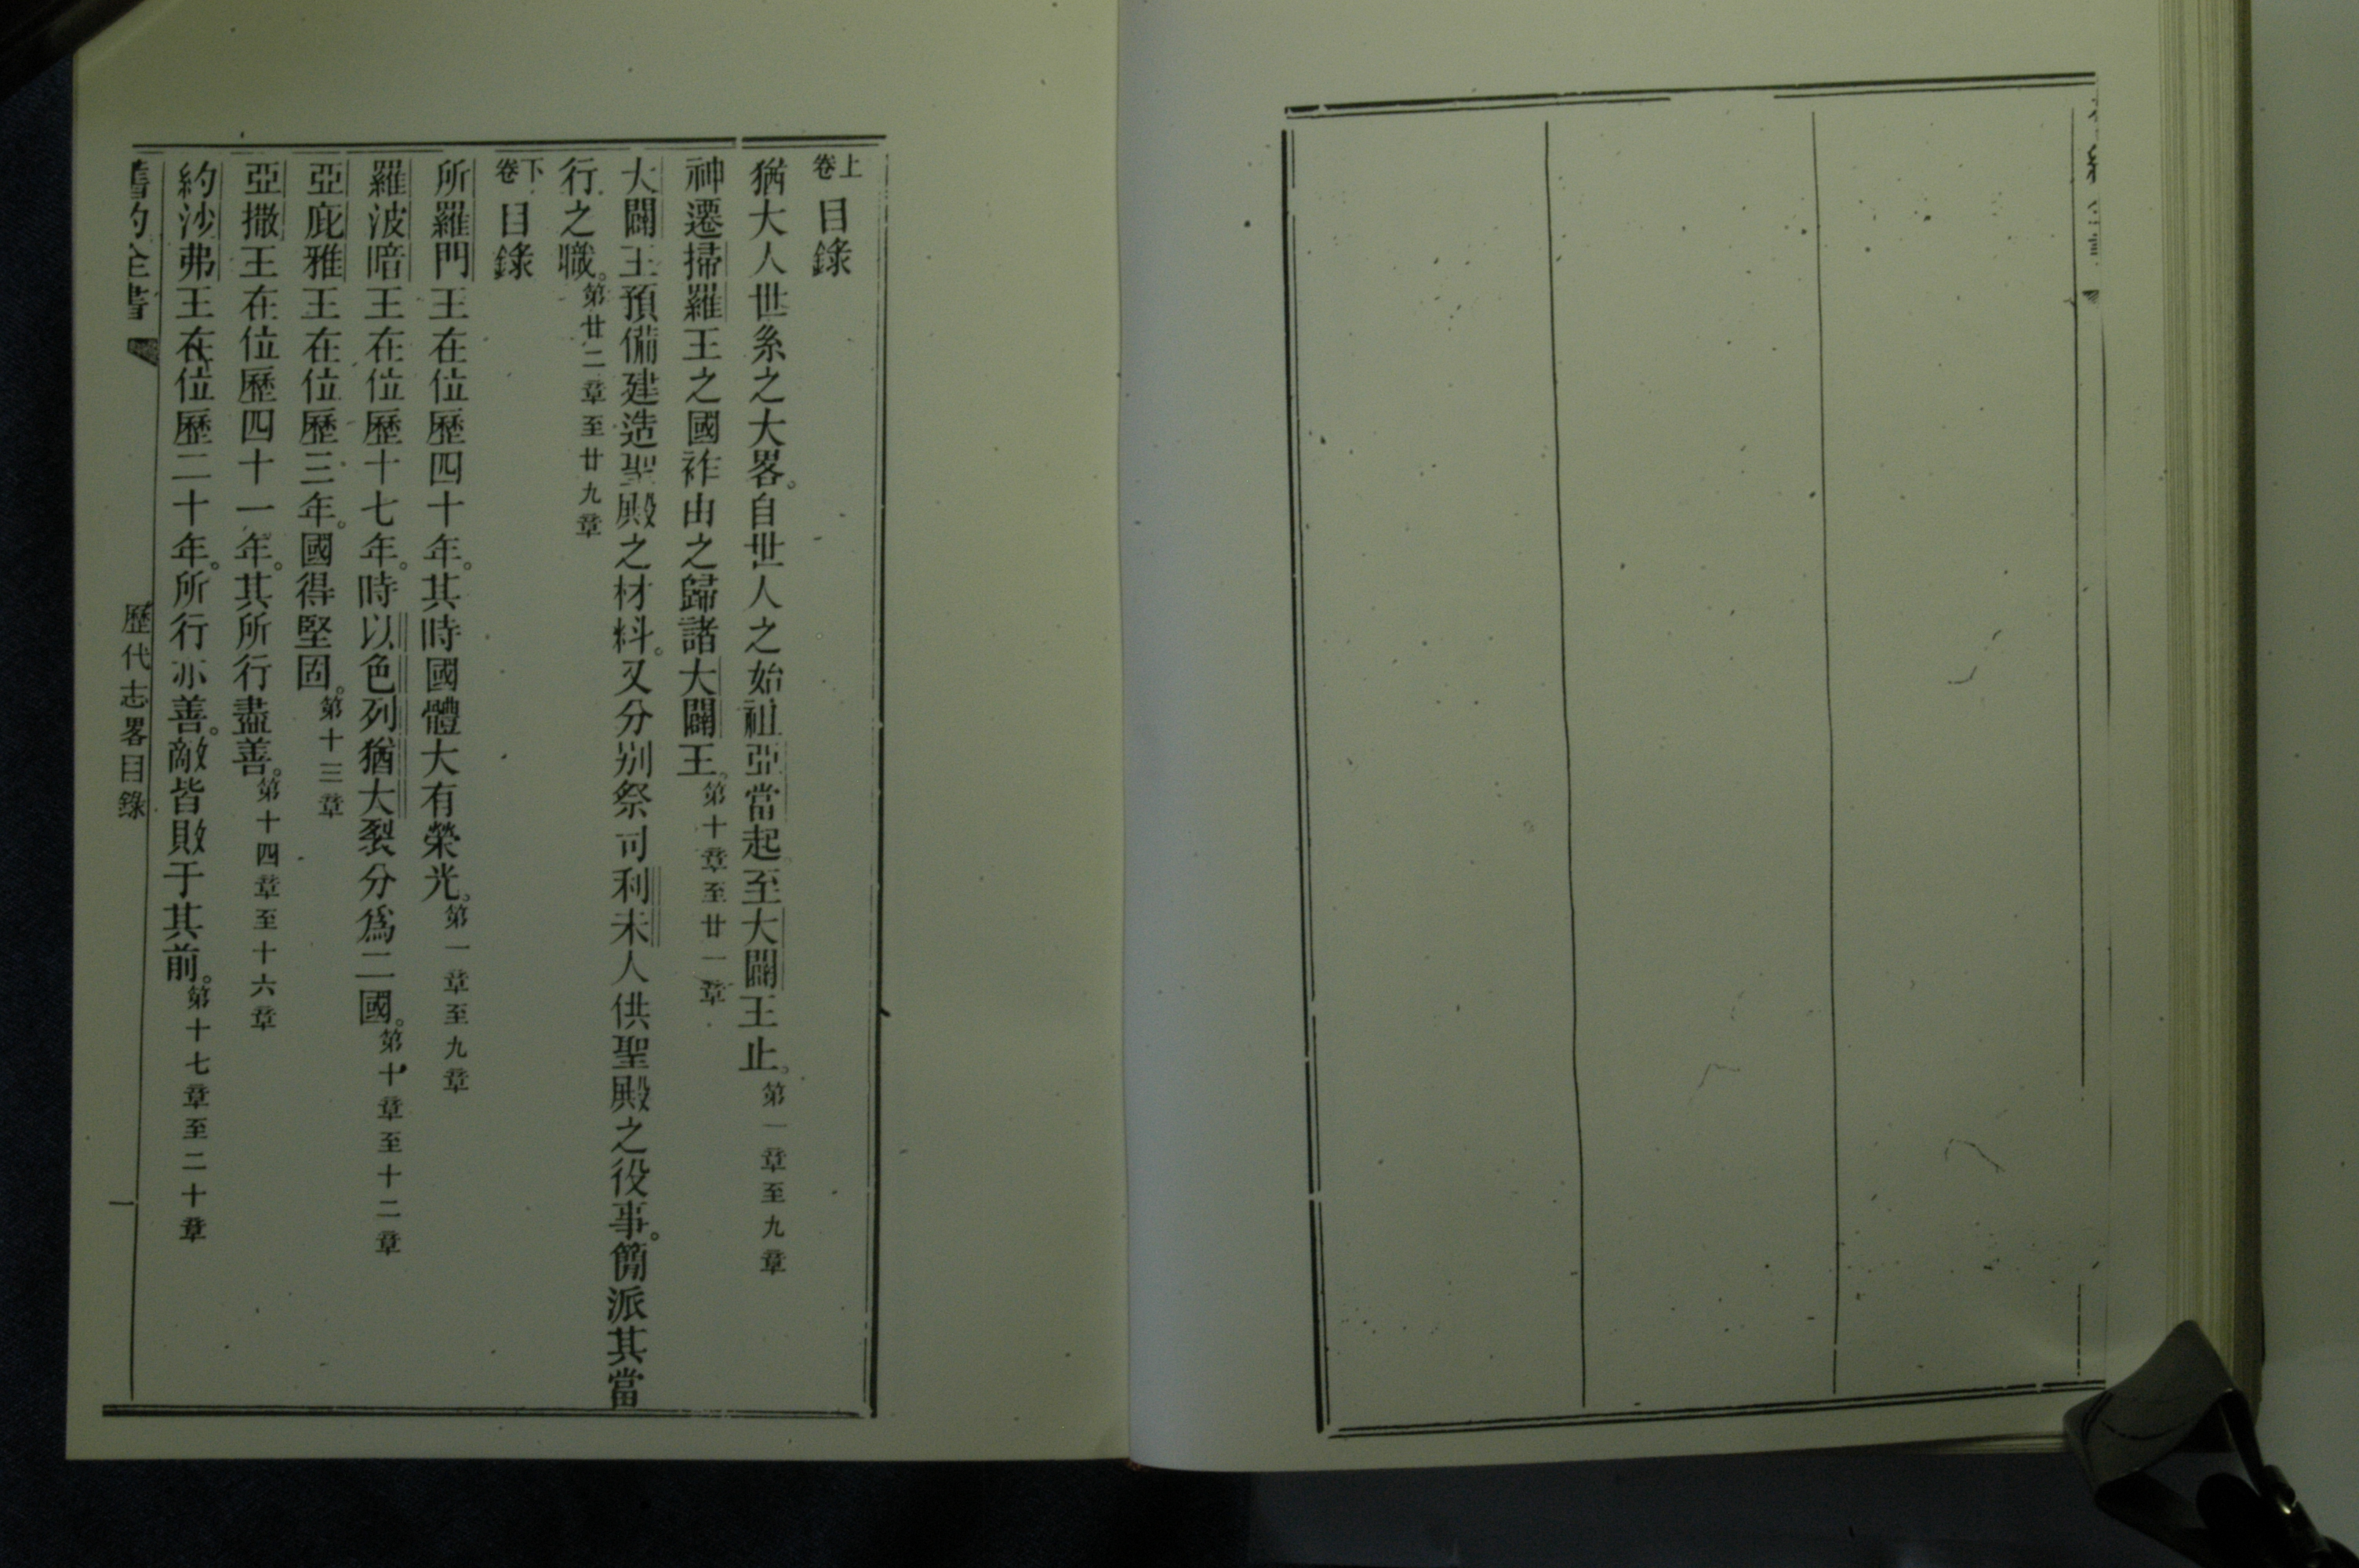 上卷 目錄
猶大人世系之大畧。自世人之始祖亞當起。至大闢王止。第一章至九章
神遷掃羅王之國祚由之歸諸大闢王。第十章至廿一章
大闢王預備建造聖殿之材料。又分別祭司利未人供聖殿之役事。簡派其當
行之職。第廿二章至廿九章
下卷 目錄
所羅門王在位歷四十年。其時國體大有榮光。第一章至九章
羅波暗王在位歷十七年。時以色列猶大裂分爲二國。第十章至十二章
亞庇雅王在位歷三年。國得堅固。第十三章
亞撒王在位歷四十一年。其所行盡善。第十四章至十六章
約沙弗王在位歷二十年。所行亦善。敵皆敗于其前。第十七章至二十章
舊約全書 歷代志畧目錄 一